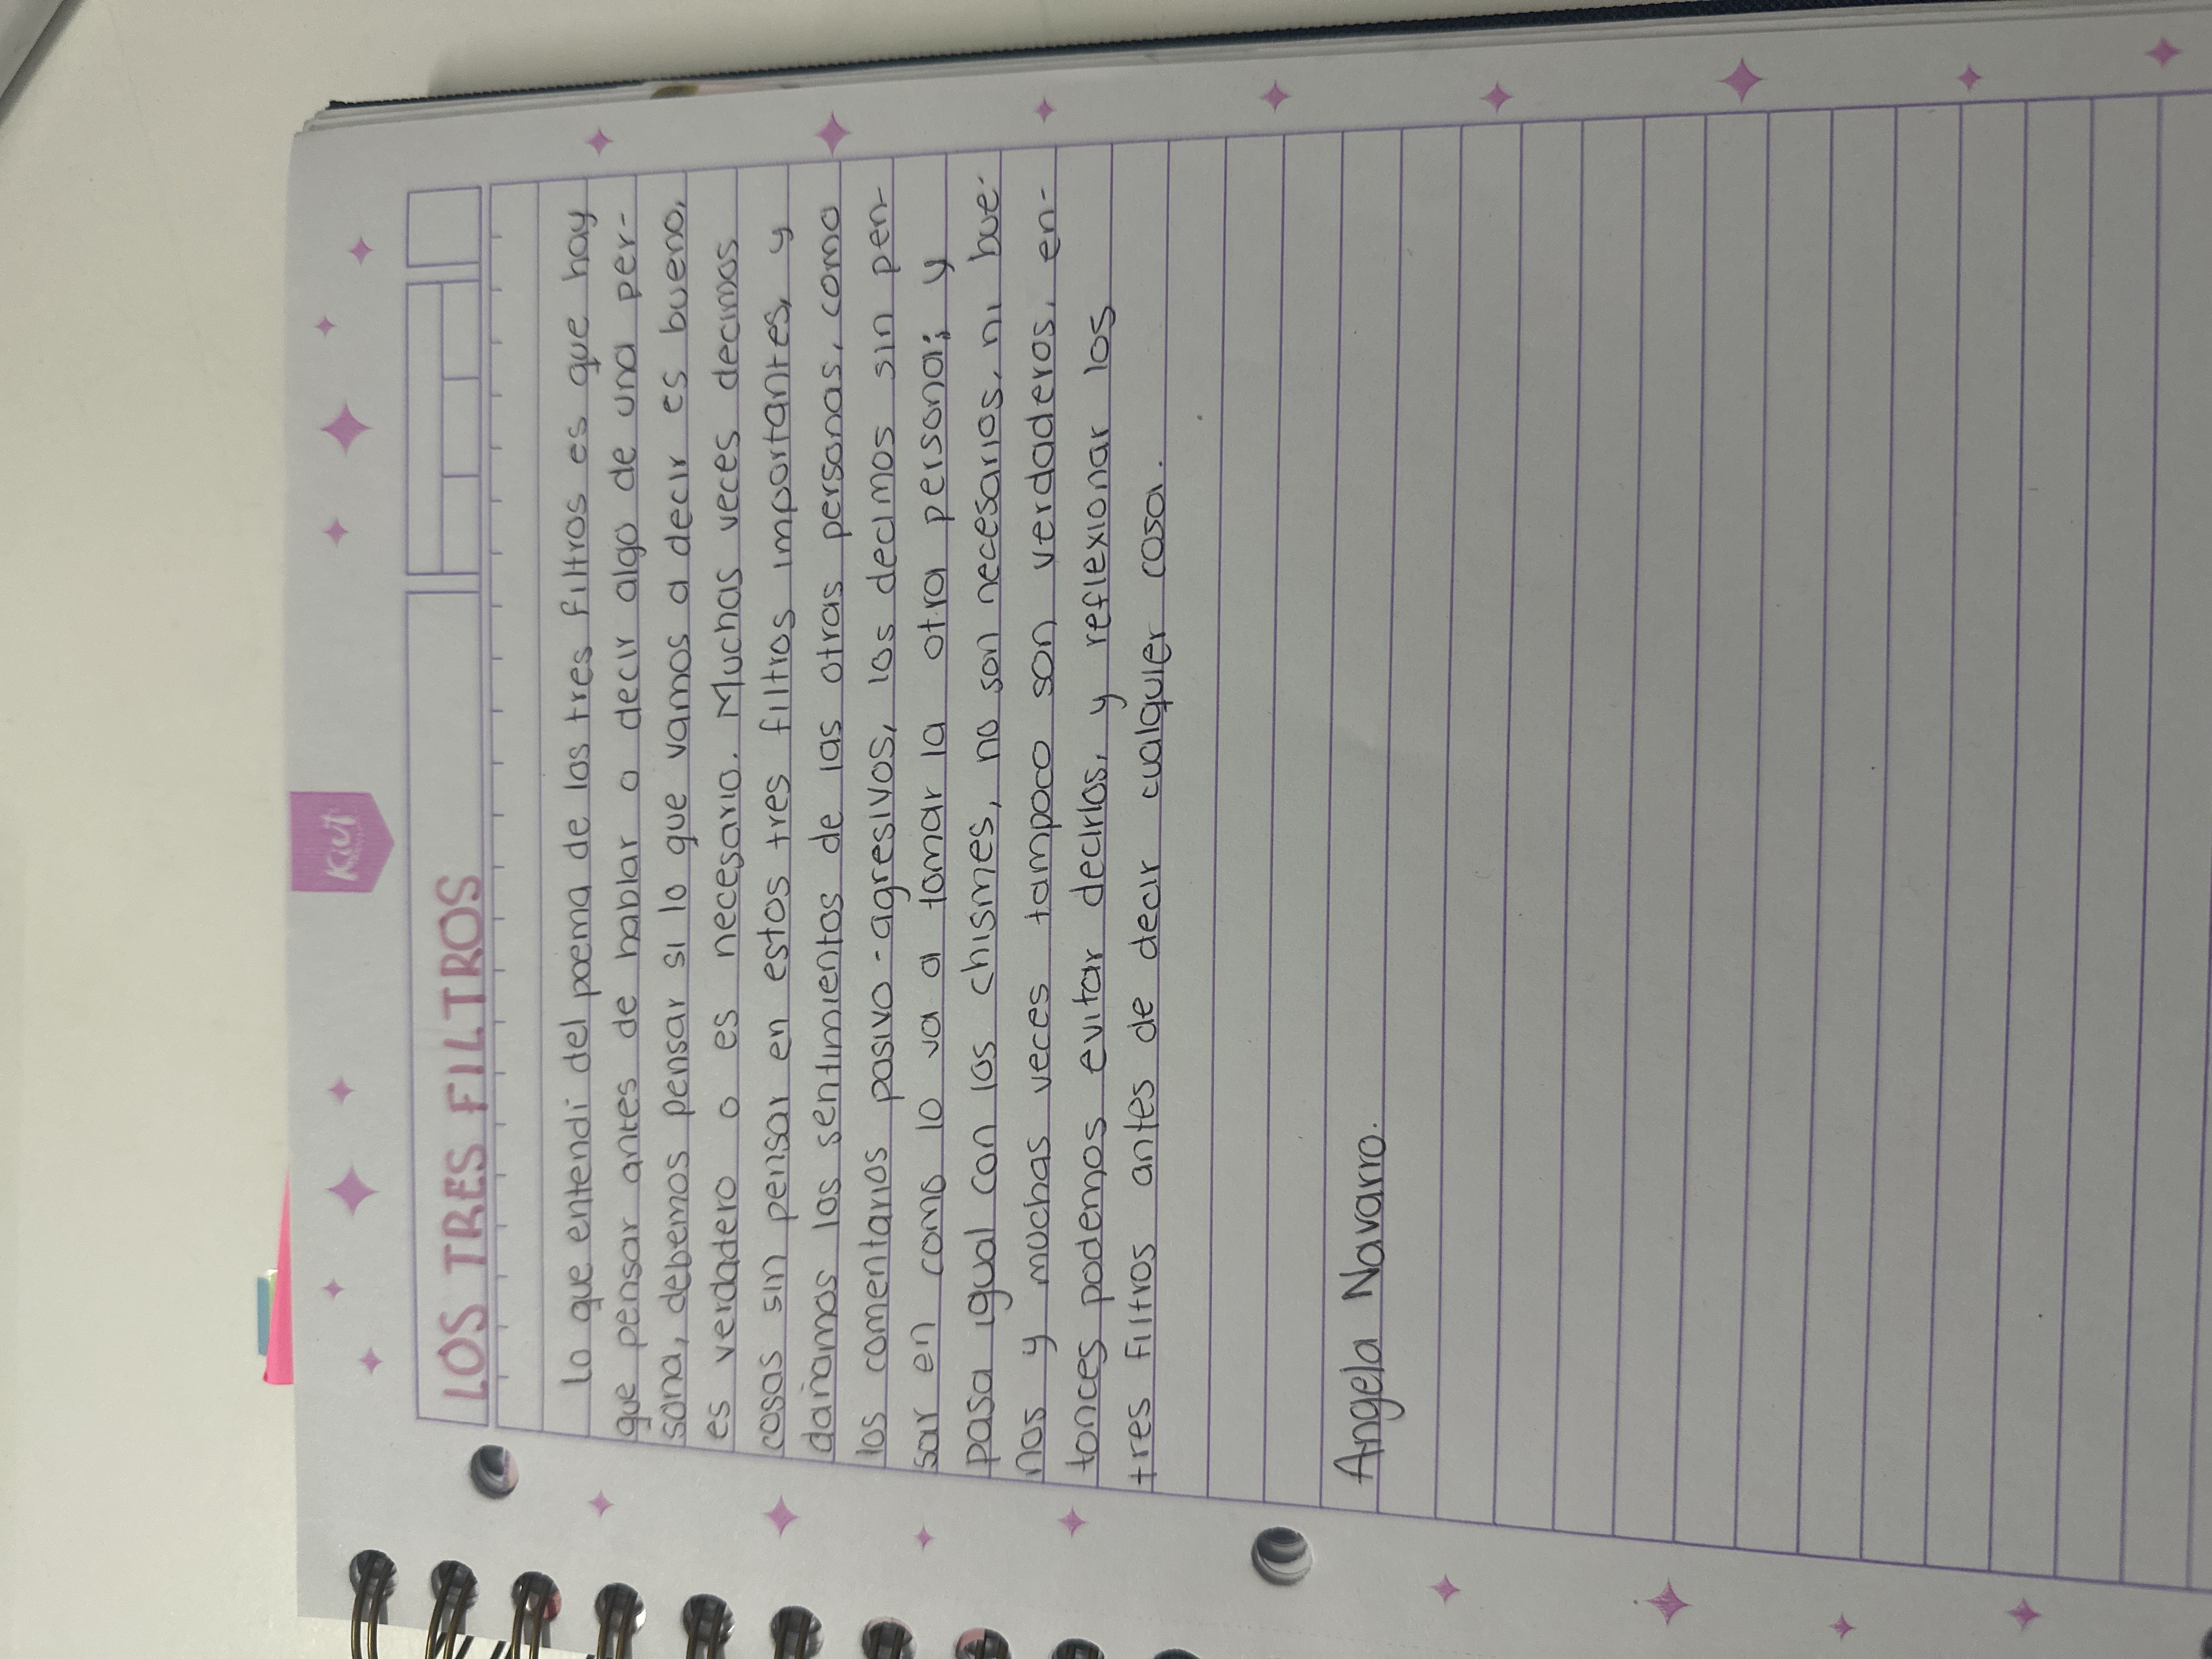 Kiut
LOS TRES FILTROS
Lo que entendi del poema de los tres filtros es que hay
que pensar antes de hablar o decir algo de una per-
sona, debemos pensar si lo que vamos a decir es bueno,
es verdadero o es necesario. Muchas veces decimos
cosas sin pensar en estos tres filtros importantes, y
dañamos los sentimientos de las otras personas, como
los comentarios pasivo-agresivos, los decimos sin pen-
sar en como lo va a tomar la otra persona; y
pasa igual con los chismes, no son necesarios, ni bue-
nos y muchas veces tampoco son verdaderos, en-
tonces podemos evitar decirlos, y reflexionar los
tres filtros antes de decir cualquier cosa.
Angela Navarro.